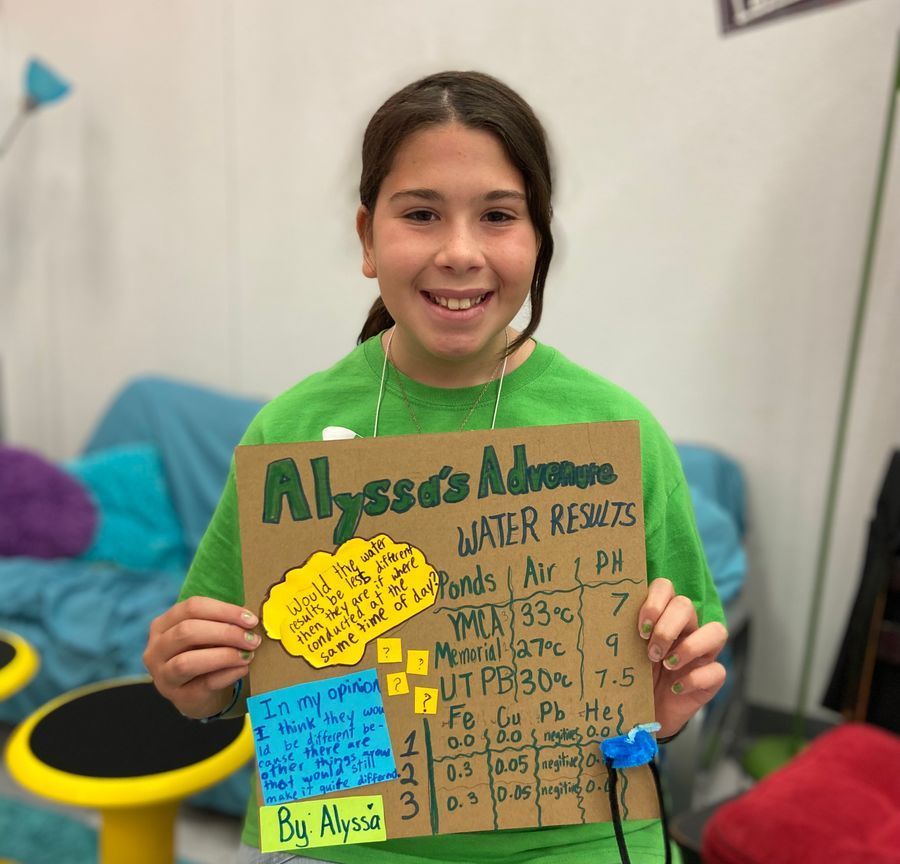 Alyssa's Advenure
WATER RESULTS
Would the water
results be less different
then they are if where
conducted at the
same time of day?
? ?
? ?
Ponds Air PH
YMCA 33°C 7
Memorial 27°C 9
UTPB 30°C 7.5
Fe Cu Pb He
1 0.0 0.0 negitive 0.0
2 0.3 0.05 negitive 0.
3 0.3 0.05 negitive 0.
In my opinion
I think they wou
ld be different be-
cause there are
other things
that would still
make it quite different.
By: Alyssa